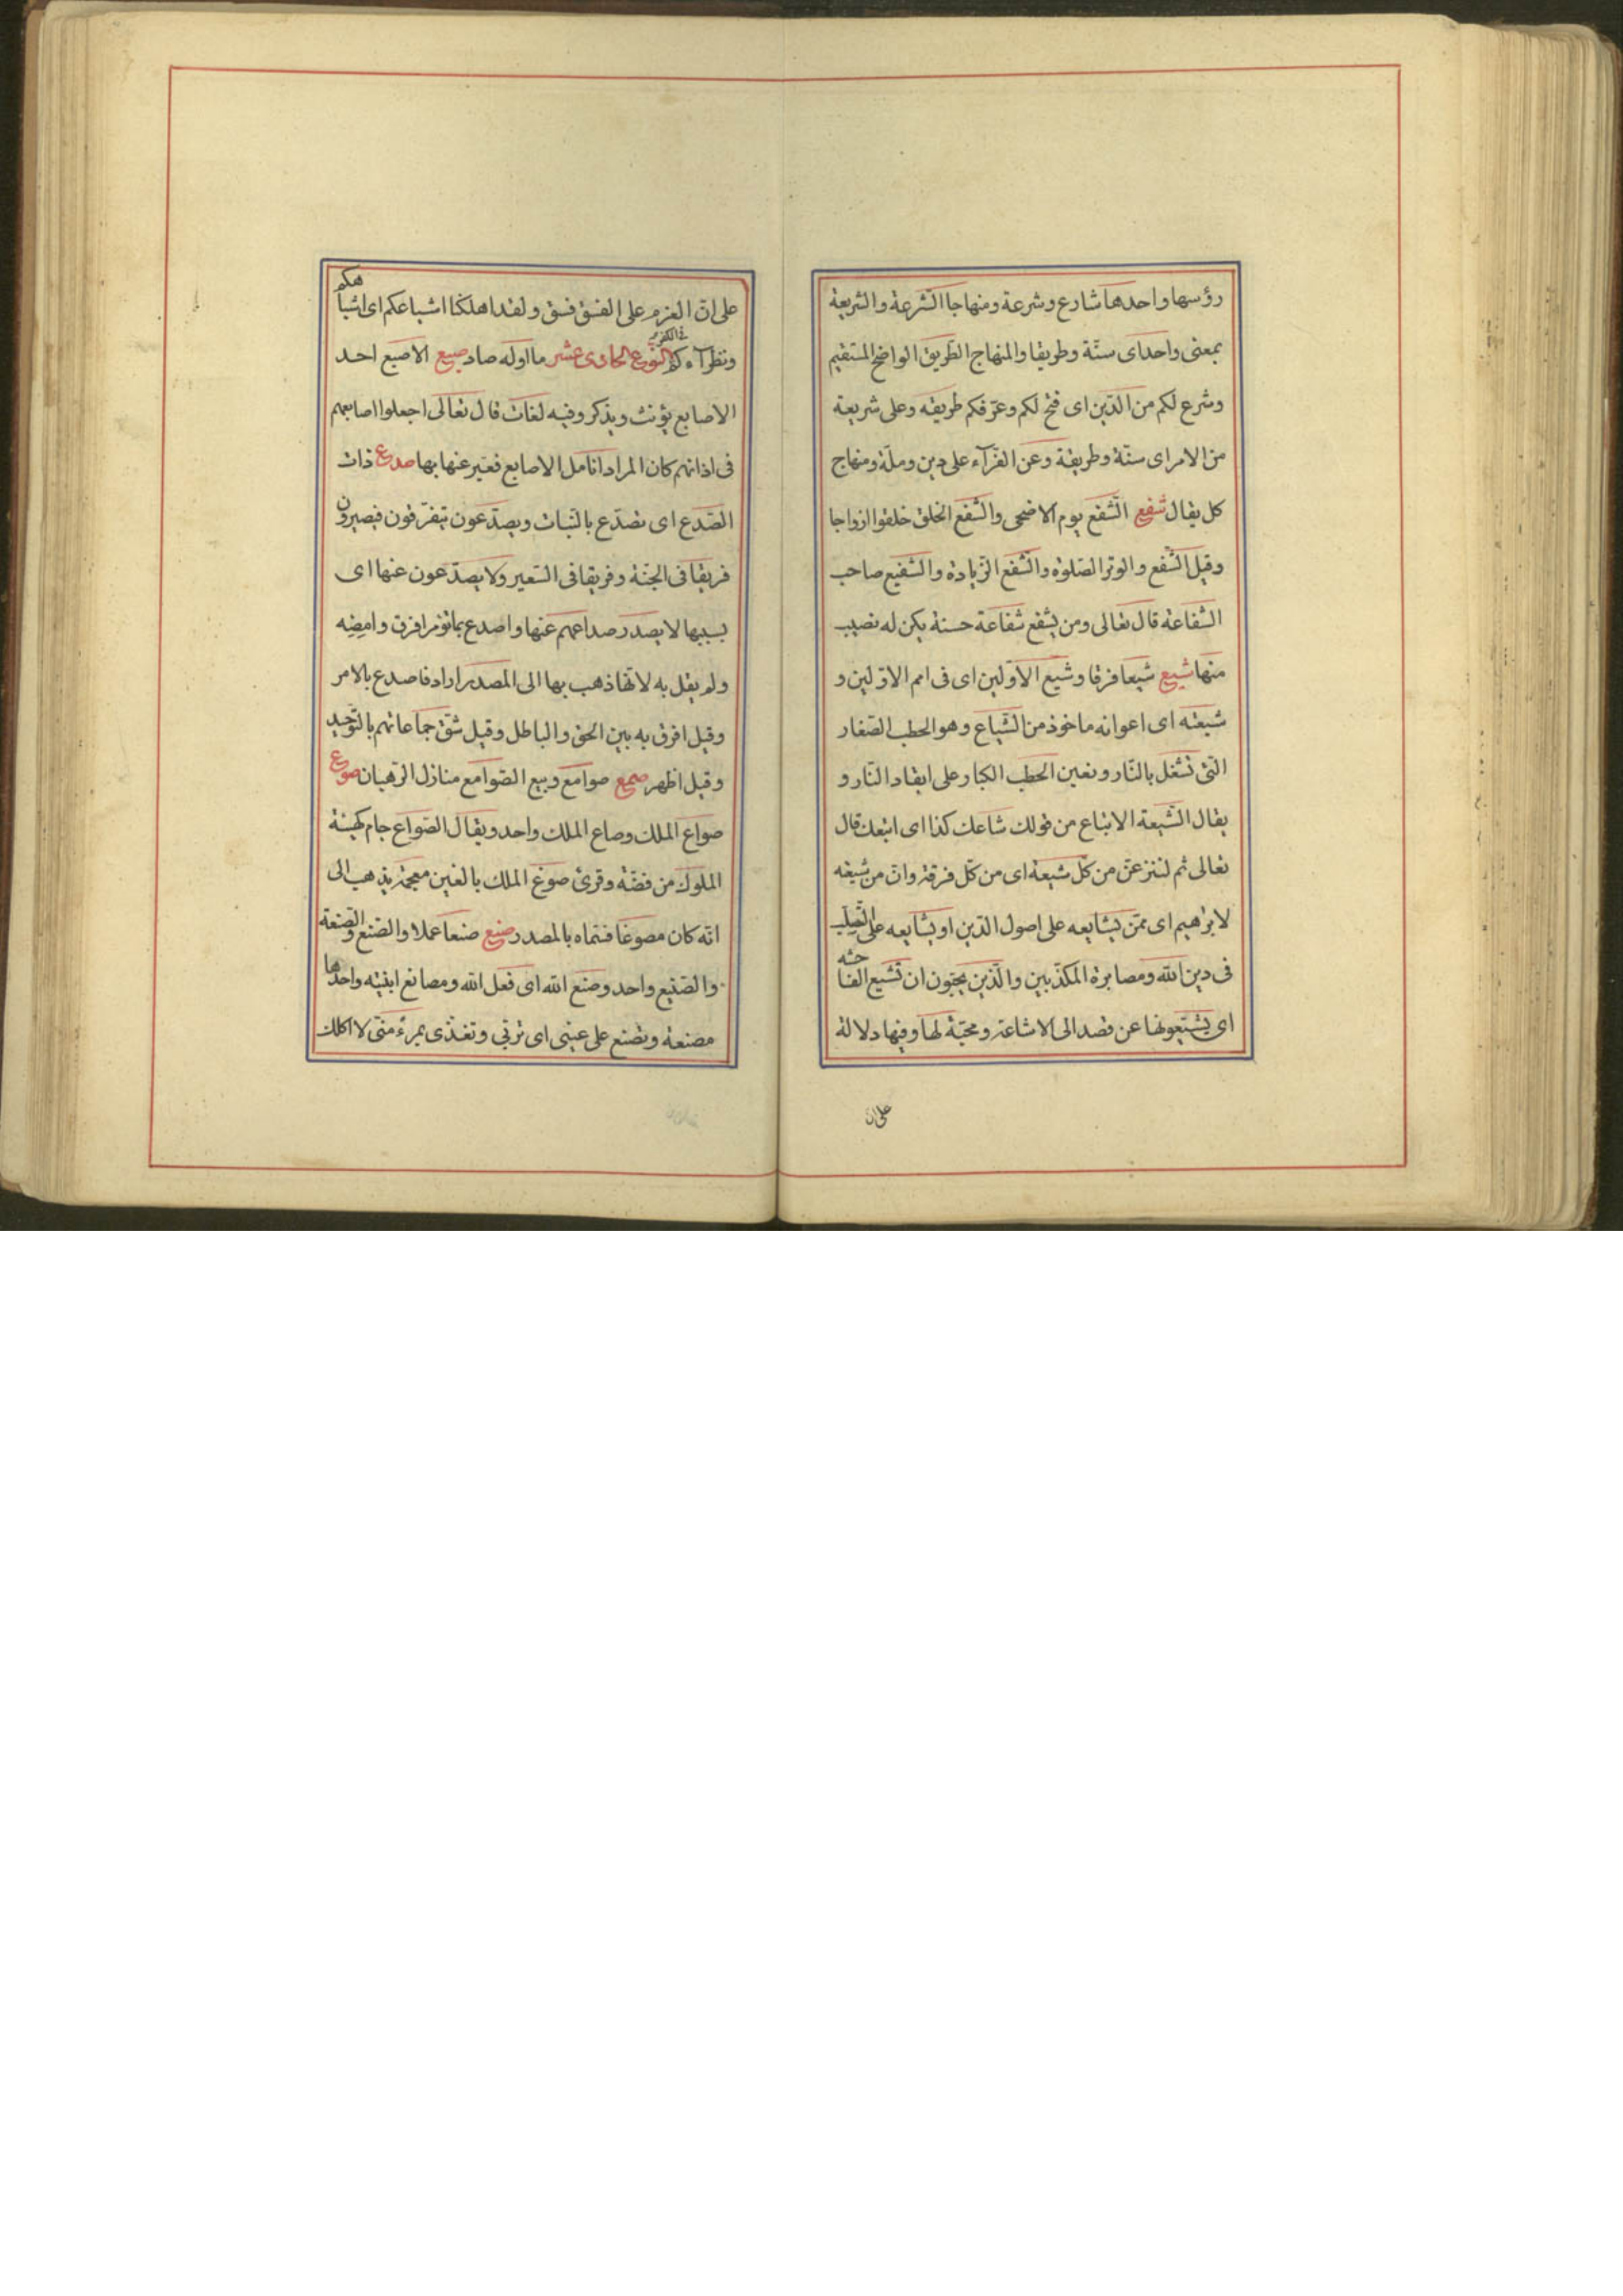 رؤسها واحدها شارع وشرعة ومنهاجا الشّرعة والشريعة
بمعنى واحد اى سنّة وطريقا والمنهاج الطّريق الواضح المستقيم
وشرع لكم من الدّين اى فتح لكم وعرّفكم طريقه وعلى شريعة
من الامر اى سنّة وطريقة وعن الفرّآء على دين وملّة ومنهاج
كل يقال شفع الشّفع يوم الاضحى والشّفع الخلق خلقوا ازواجا
وقيل الشّفع والوتر الصّلوة والشّفع الزّيادة والشّفيع صاحب
الشّفاعة قال تعالى ومن يشفع شفاعة حسنة يكن له نصيب
منها شيع شيعا فرقا وشيع الاوّلين اى فى امم الاوّلين و
شيعته اى اعوانه ماخوذ من الشّياع وهو الحطب الصّغار
التى تشغل بالنّار وتعين الحطب الكبار على ايقاد النّار و
يقال الشّيعة الاتباع من قولك شاعك كذا اى اتبعك قال
تعالى ثم لننزعنّ من كلّ شيعة اى من كلّ فرقة وانّ من شيعته
لابرهيم اى ممّن يشايعه على اصول الدّين او يشايعه على التّصلّب
فى دين الله ومصابرة المكذّبين والّذين يحبّون ان تشيع الفاحشه
اى يشيعونها عن قصد الى الاشاعة ومحبّة لها وفيها دلالة
على انّ
على انّ العزم على الفسق فسق ولقد اهلكنا اشياعكم اى اشباهكم
ونظرآءكم فى الكفر النوع الحادى عشر ما اوله صاد صبع الاصبع احد
الاصابع يؤنث ويذكر وفيه لغات قال تعالى اجعلوا اصابعهم
فى اذانهم كان المراد انامل الاصابع فعبّر عنها بها صدع ذات
الصّدع اى تصدّع بالنّبات ويصدّعون يتفرّقون فيصيرون
فريقا فى الجنّة وفريقا فى السّعير ولا يصدّعون عنها اى
بسببها لا يصدر صداعهم عنها واصدع بما تؤمر افرق وامضه
ولم يقل به لانّها ذهب بها الى المصدر اراد فاصدع بالامر
وقيل افرق به بين الحق والباطل وقيل شقّ جماعاتهم بالتّوحيد
وقيل اظهر صمع صوامع وبيع الصّوامع منازل الرّهبان صوع
صواع الملك وصاع الملك واحد ويقال الصّواع جام كهيئة
الملوك من فضّة وقرئ صوغ الملك بالغين معجمة يذهب الى
انّه كان مصوغا فسمّاه بالمصدر صنع صنعا عملا والصّنع والصّنعة
والصّنيع واحد وصنع الله اى فعل الله ومصانع ابنيته واحدها
مصنعة وتصنع على عينى اى تربّى وتغذّى بمرءً منّى لا اكلك